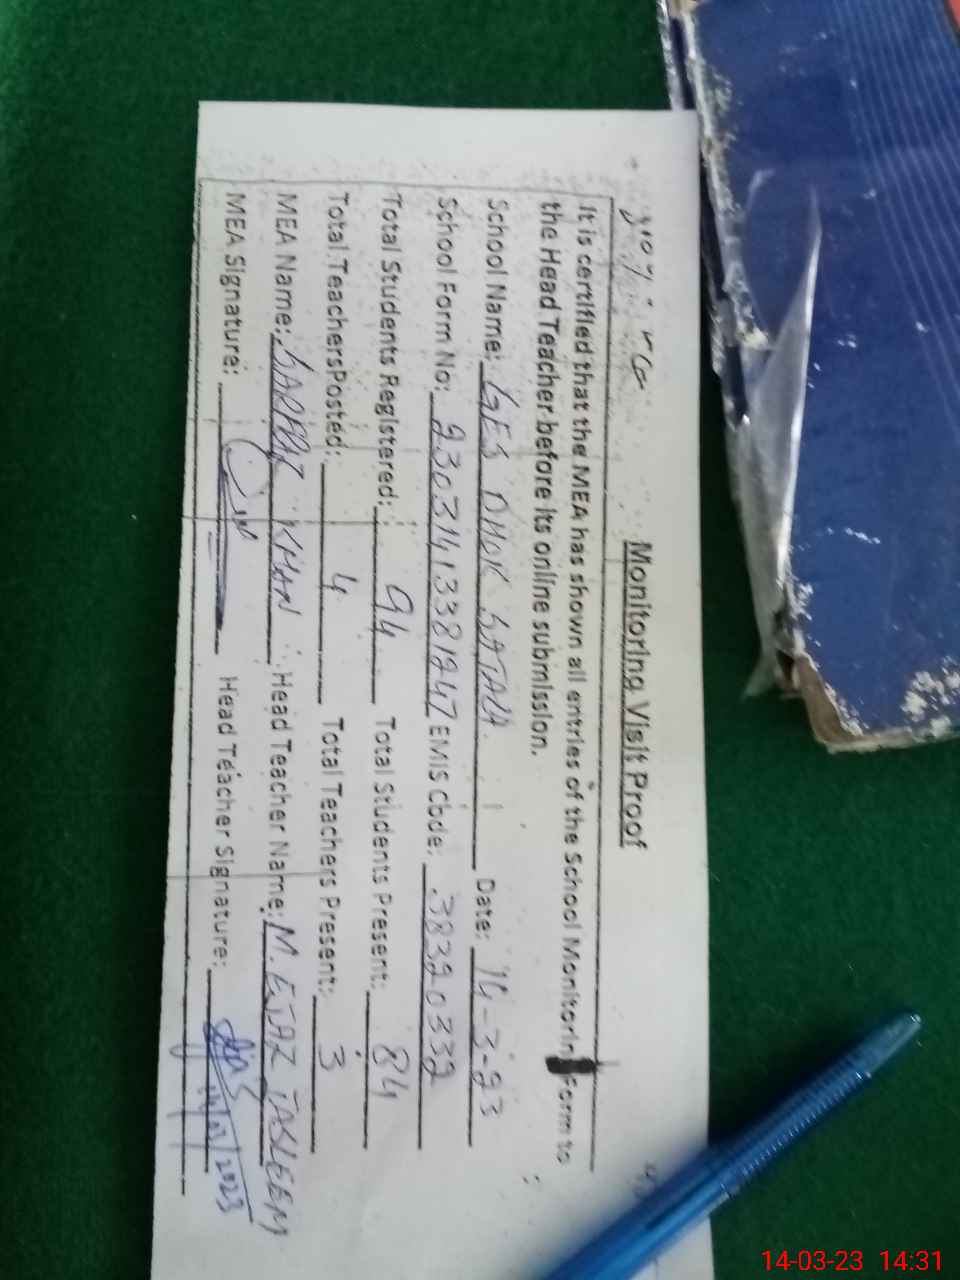 Monitoring Visit Proof
It is certified that the MEA has shown all entries of the School Monitoring Form to
the Head Teacher before its online submission.
School Name: GES DHOK Date: 14-3-23
School Form No: EMIS Code: 38320332
Total Students Registered: 94 Total Students Present: 84
Total Teachers Posted: 4 Total Teachers Present: 3
MEA Name: KHAN Head Teacher Name: M. EJAZ TASLEEM
MEA Signature: Head Teacher Signature:
14/03/2023
14-03-23 14:31